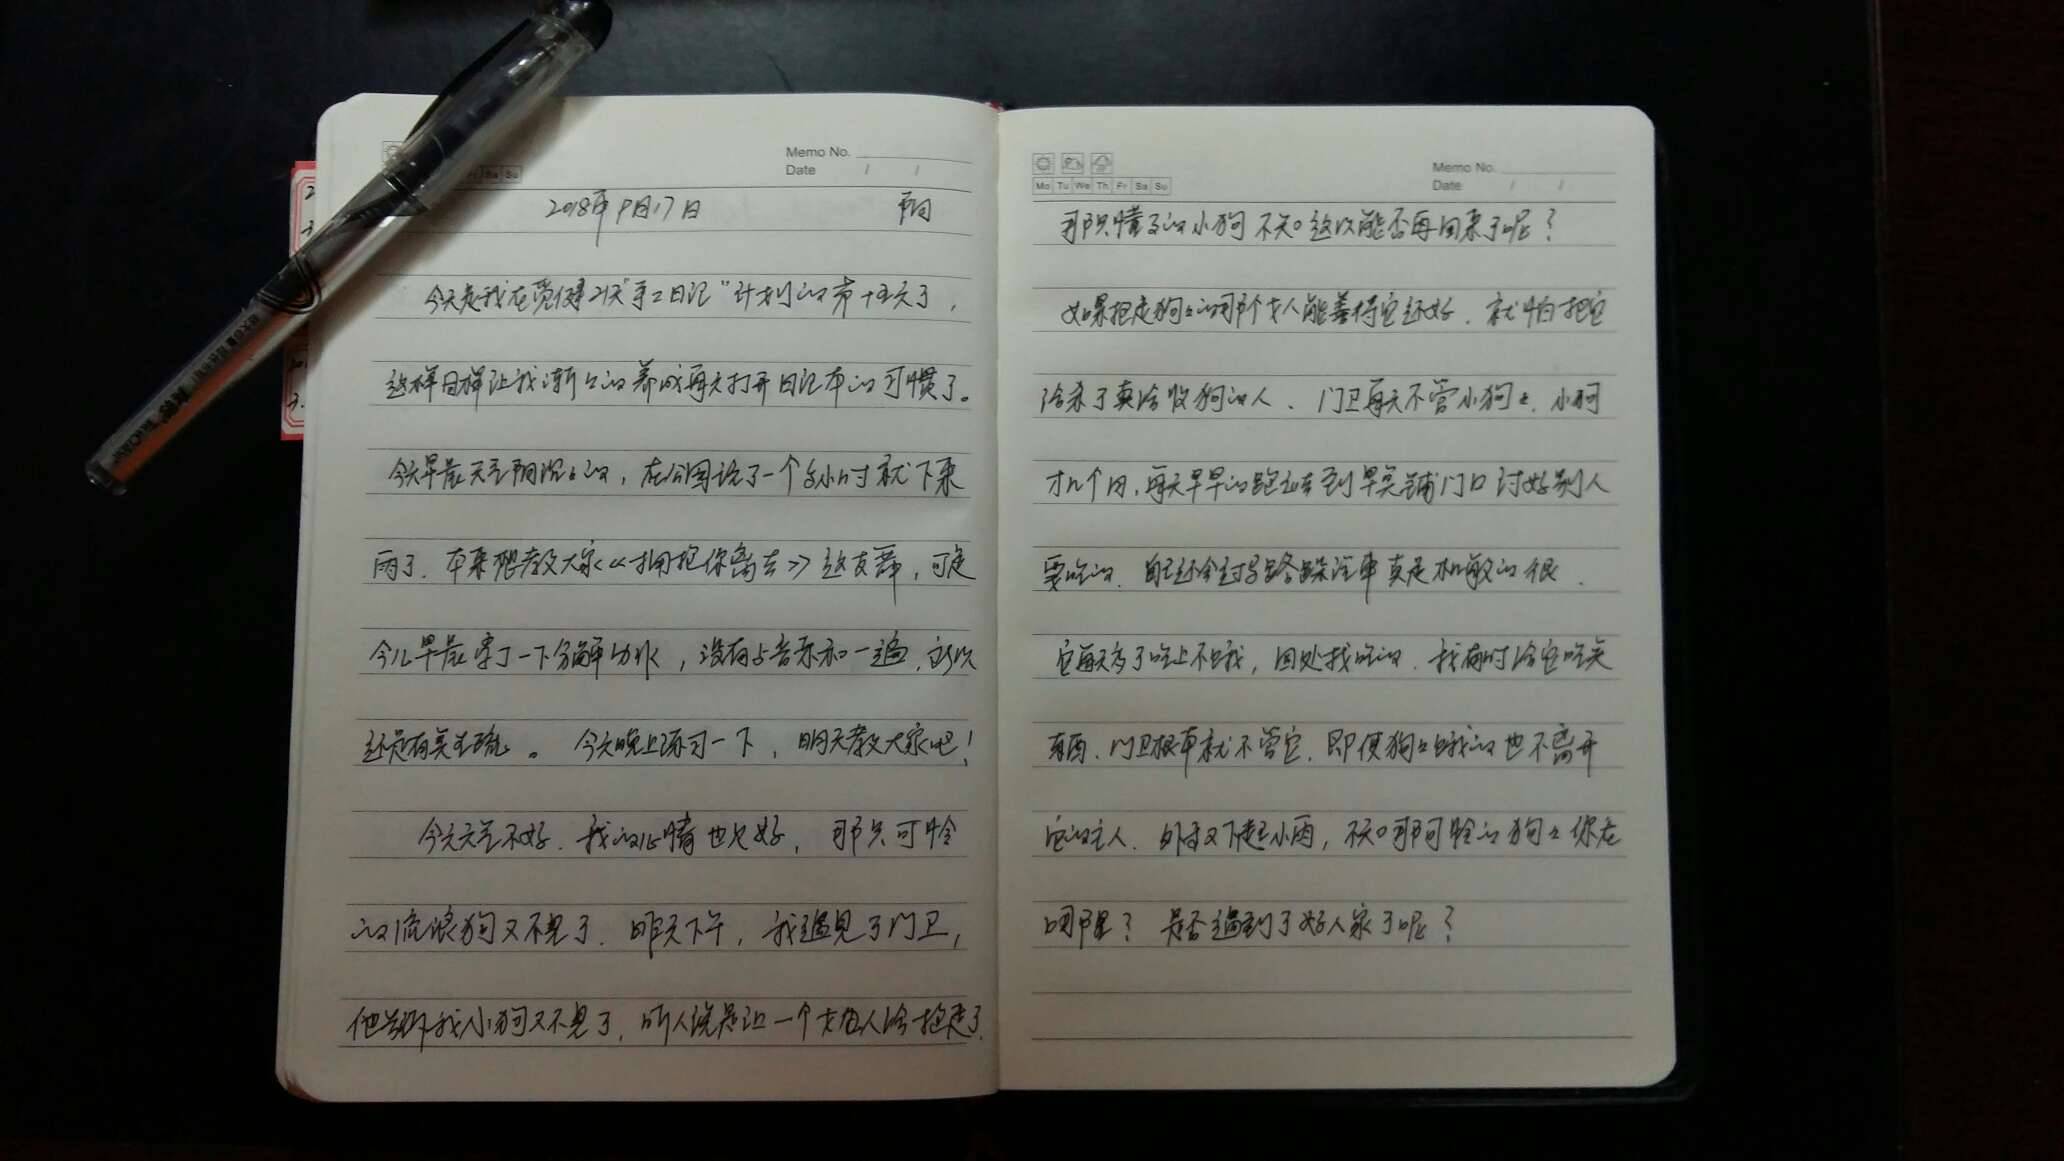 Fr Sa Su
Memo No.
Date / /
2018年9月17日 阴
今天是我在贾健21天"手工日记"计划的第十五天了，
这样日样让我渐々的养成每天打开日记本的习惯了。
今天早晨天气阴沉々的，在公园玩了一个多小时就下来
雨了．本来想教大家《拥抱你离去》这支舞，可是
今儿早晨 了一下分解动作，没有与音乐和一遍，所以
还是有关生疏。 今天晚上练习一下，明天教大家吧！
今天天气不好．我的心情也欠好，那只可怜
的流浪狗又不见了．昨天下午，我遇见了门卫，
他告诉我小狗又不见了．听人说是让一个女的人给抱走了．
Mo Tu We Th Fr Sa Su
Memo No.
Date / /
那只懂事的小狗不知这次能否再回来了呢？
如果抱走狗々的那个女人能善待它还好．就怕把它
给杀了卖给收狗的人．门卫每天不管小狗々．小狗
才几个月，每天早早的跑去到早点铺门口讨好别人
要吃的．自己还会过马路躲汽车真是机敏的很．
它每天为了吃上不饿，四处找吃的．我有时给它吃点
东西．门卫根本就不管它．即使狗々饿的也不离开
它的主人．外面又下起小雨，不知那可怜的狗々你在
哪里？ 是否遇到了好人家了呢？